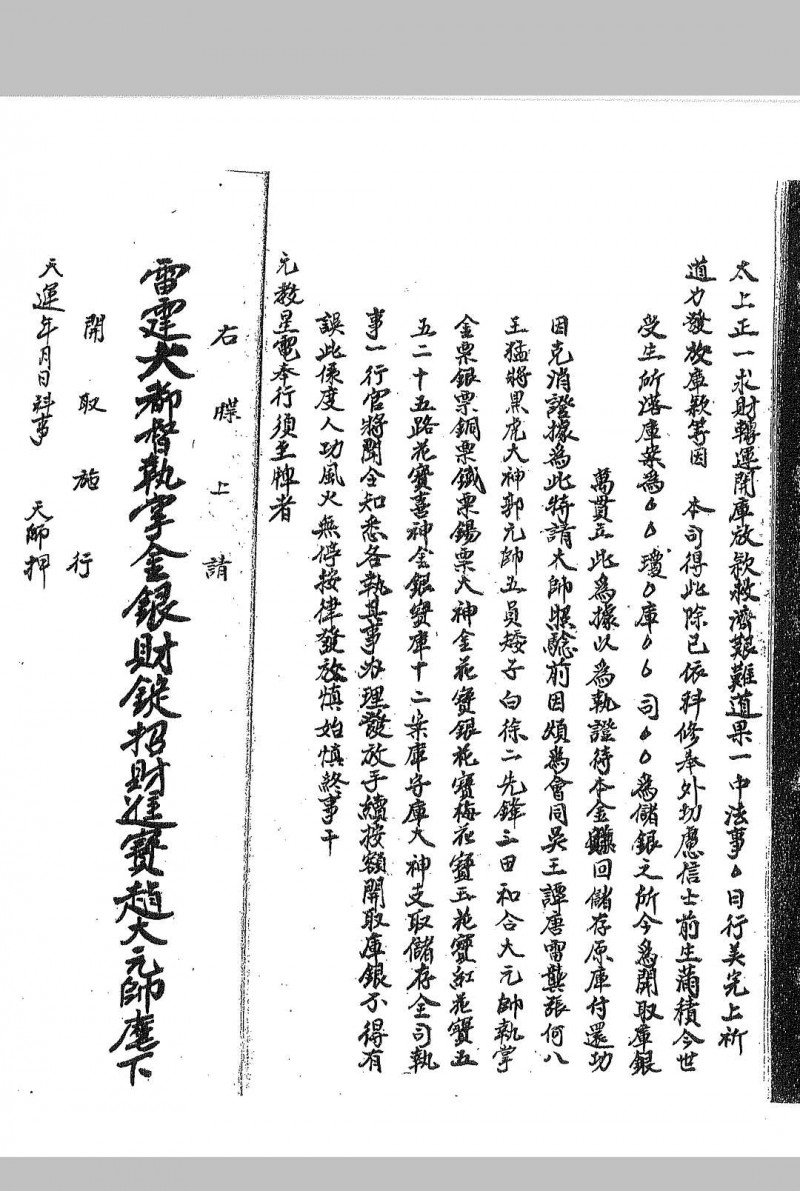 太上正一求財轉運開庫放款救濟艱難道果一中法事〇日行美完上祈
道力發放庫款等因　本司得此除已依科修奉外切慮信士前生蘭積今世
受生所落庫案為〇〇瓊〇庫〇〇司〇〇為儲銀之所今為開取庫銀
萬貫立此為據以為執證待本金賺回儲存原庫付還功
因克消證據為此特請大帥照驗前因煩為會同吳王譚唐雷龔張何八
王猛將黑虎大神郭元帥五員矮子白徐二先鋒三田和合大元帥執掌
金票銀票銅票鐵票錫票大神金花寶銀花寶梅花寶玉花寶紅花寶五
五二十五路花寶喜神金銀寶庫十二案庫守庫大神支取儲存仝司執
事一行官將閱仝知悉各執其事办理發放手續按額開取庫銀不得有
誤此係度人功風火無停按律發放慎始慎終事干
元教星電奉行須至牒者
右牒上請
雷霆大都督執掌金銀財錠招財進寶趙大元帥麾下
開取施行
天運年月日科事　天師押